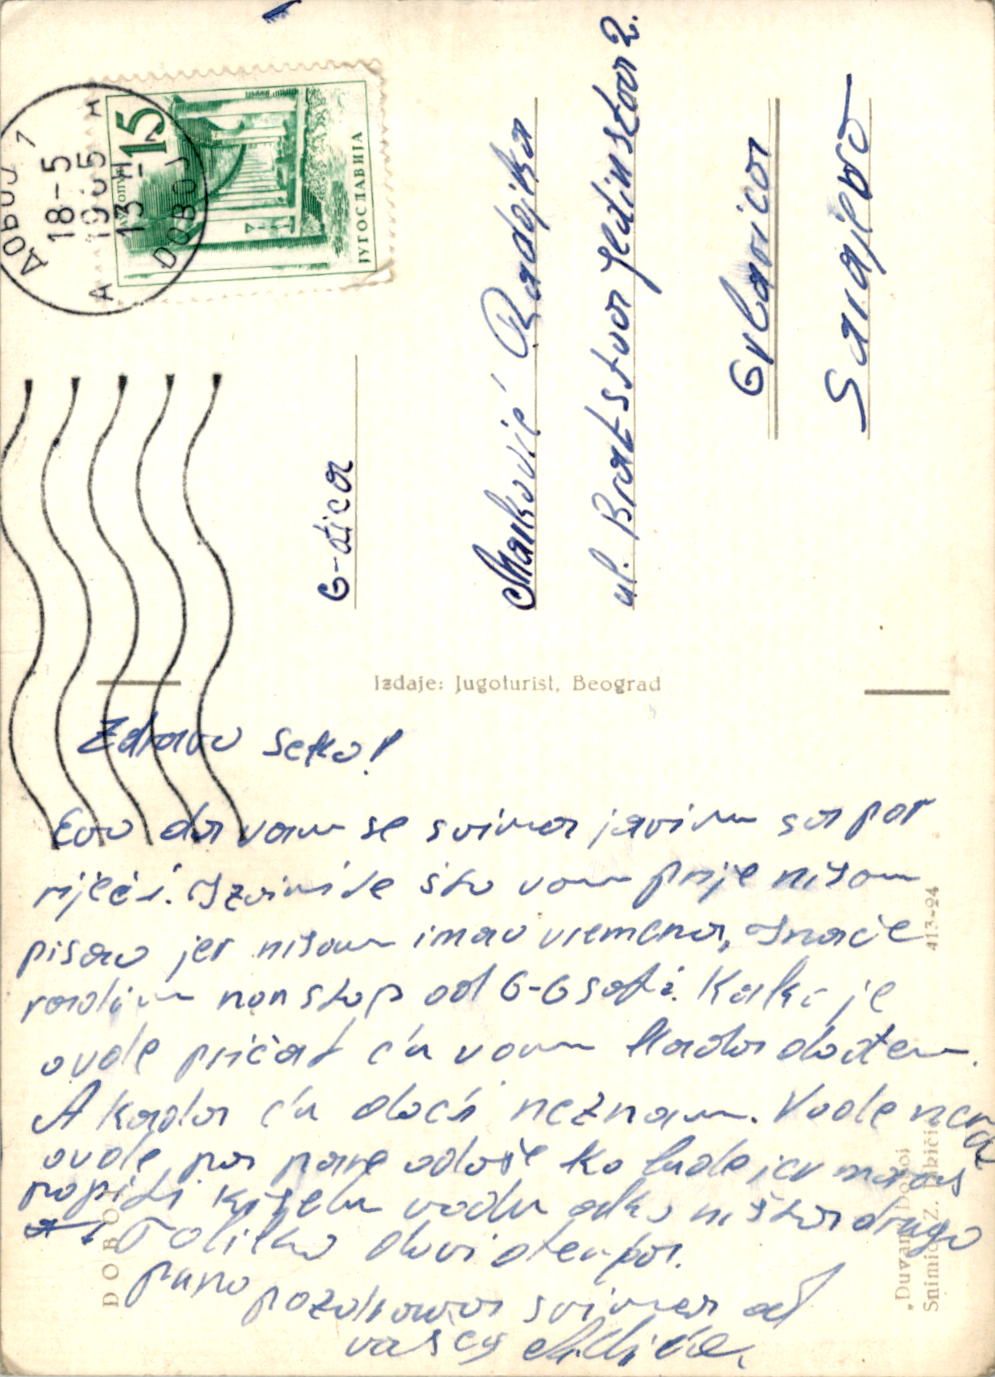 ДОБОЈ 1
18-5
1965
13-H
DOBOJ
A
15
ЈУГОСЛАВИЈА
G-đica
Marković Radojka
ul. Bratstva Jedinstva 2.
Grbavica
Sarajevo
Izdaje: Jugoturist, Beograd
Zdravo seko!
Evo da vam se svima javim sa par
riječi. Izvinite što vam prije nisam
pisao jer nisam imao vremena, Inače
radim nonstop od 6-6 sati. Kako je
ovde pričat ću vam kada dođem.
A kada ću doći neznam. Vode nema
ovde, pa pare odoše ko lude jer moraš
popiti kiselu vodu ako ništa drugo
Toliko dovidjenja.
puno pozdrava svima od
vašeg
413-94
DOBOJ
"Duvan" Doboj
Snimio: Z.